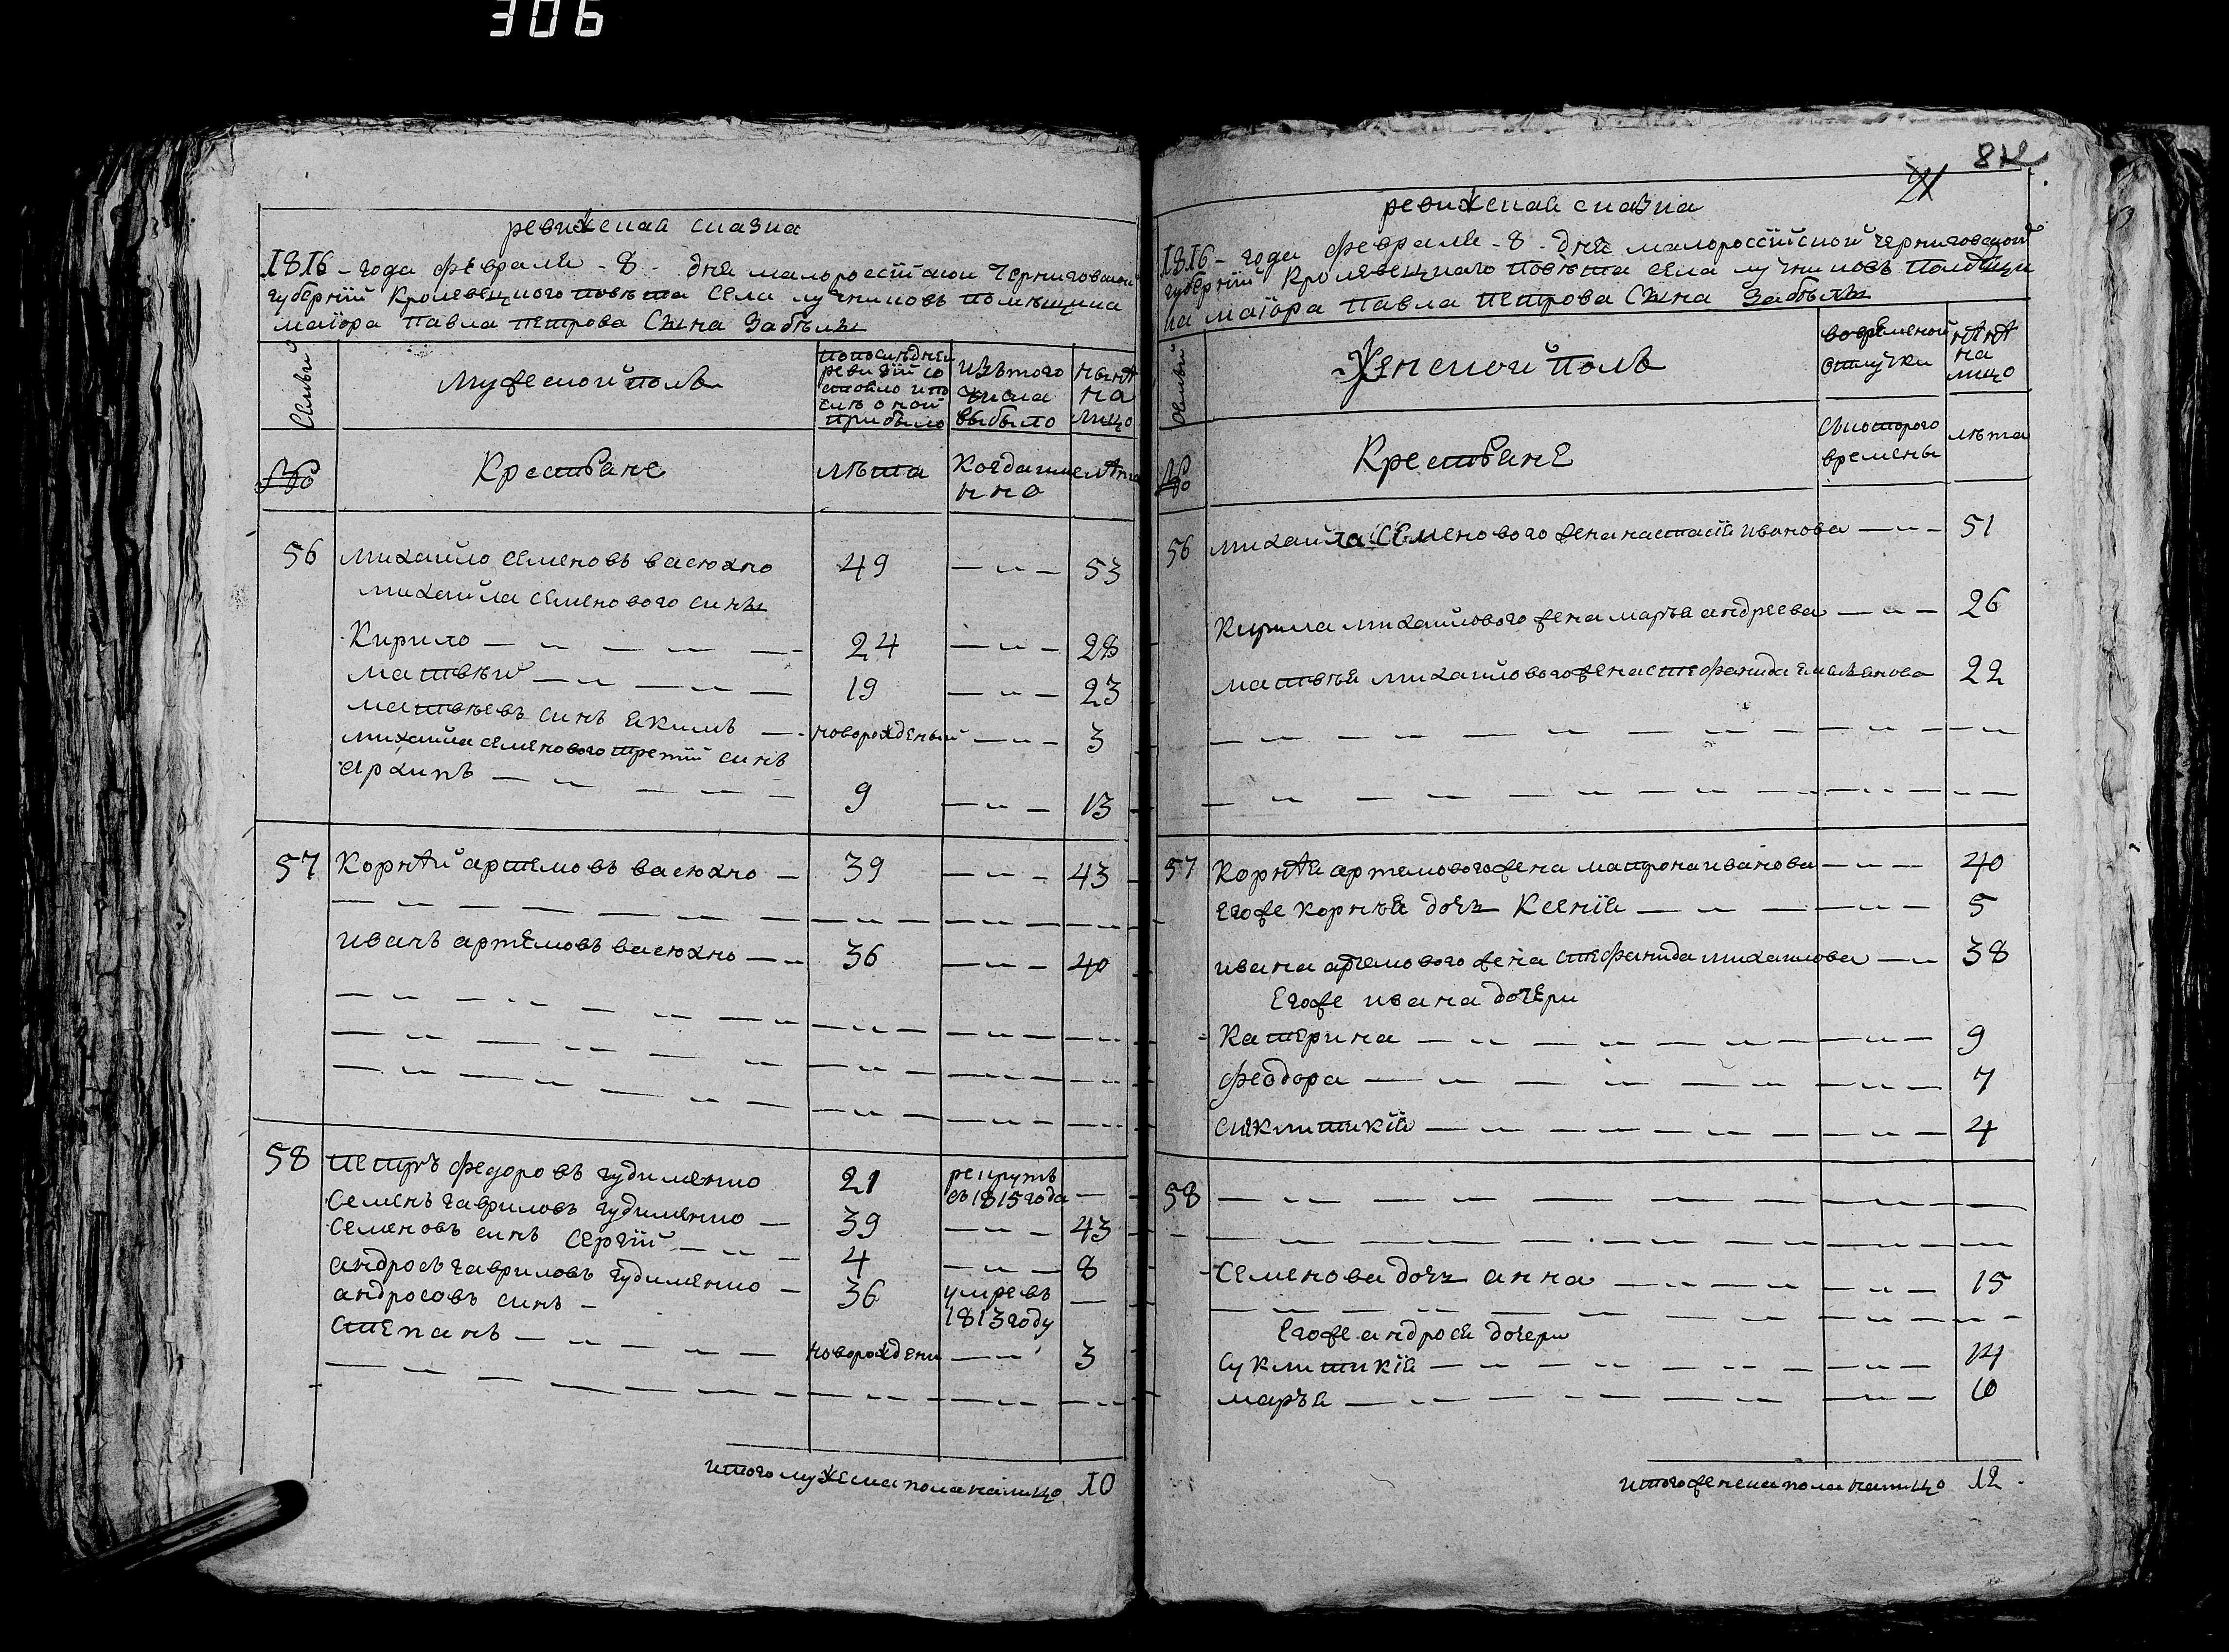 306
ревижская сказка
1816 - года февраля - 8 - дня малороссійской Черниговской
губерніи Кролевецкого повѣта Села лучниковъ помѣщика
маіора Павла петрова Сына Забѣлы
Семьи
Мужеской полъ
попослѣдней
ревизіи со
стояло ипо
слѣ оной
прибыло
Изътого
числа
выбыло
нынѣ
на
лицо
№
Крестьяне
лѣта
Когда имя
нно
лѣта
56 михайло семеновъ васюхно 49 — „ — 53
михайла семенового сины
Кирило — „ — „ — 24 — „ — 28
матвѣй — „ — „ — 19 — „ — 23
матвѣевъ синъ якимъ — новорожденый — „ — 3
михайла семенового третій синъ
архипъ — „ — „ — 9 — „ — 13
57 Корнѣй артемовъ васюхно — 39 — „ — 43
иванъ артемовъ васюхно — „ 36 — „ — 40
58 петръ федоровъ гудименко 21 рекрутъ
съ1815года —
Семенъ гавриловъ гудименко — 39 — „ — 43
Семеновъ синъ Сергій — „ — 4 — „ — 8
андросъ гавриловъ гудименко — 36 умревъ
1813году —
андросовъ синъ —
Степанъ — „ — „ — новорождени — „ 3
итого мужеска пола налицо 10
82
21
ревижская сказка
1816 - года февраля - 8 - дня малороссійской черниговской
губерніи Кролевецкаго повѣта села лучниковъ помѣщи
ка маіора Павла петрова Сына Забѣлы
Семьи
Женской полъ
вовременой
отлучки
нѣнѣ
на
лицо
№
Крестьяне
Скоторого
времены
лѣта
56 михайла Семенового жена настасія иванова — „ — 51
Кирила михайлового жена марья андреева — „ — 26
матвѣя михайлового жена стефанида емельянова 22
57 Корнѣя артемового жена матрона иванова — „ — 40
Егоже корнѣя дочь Ксенія — „ — „ — 5
ивана артемового жена стефанида михаилова — „ 38
Егоже ивана дочери
Катерина — „ — „ — „ — 9
феодора — „ — „ — „ — 7
Сиклитикія — „ — „ — „ — 4
58
Семенова дочь анна — „ — „ — „ — 15
Егоже андрося дочери
Суклитикія — „ — „ — „ — 14
марья — „ — „ — „ — 10
итого женска пола налицо 12